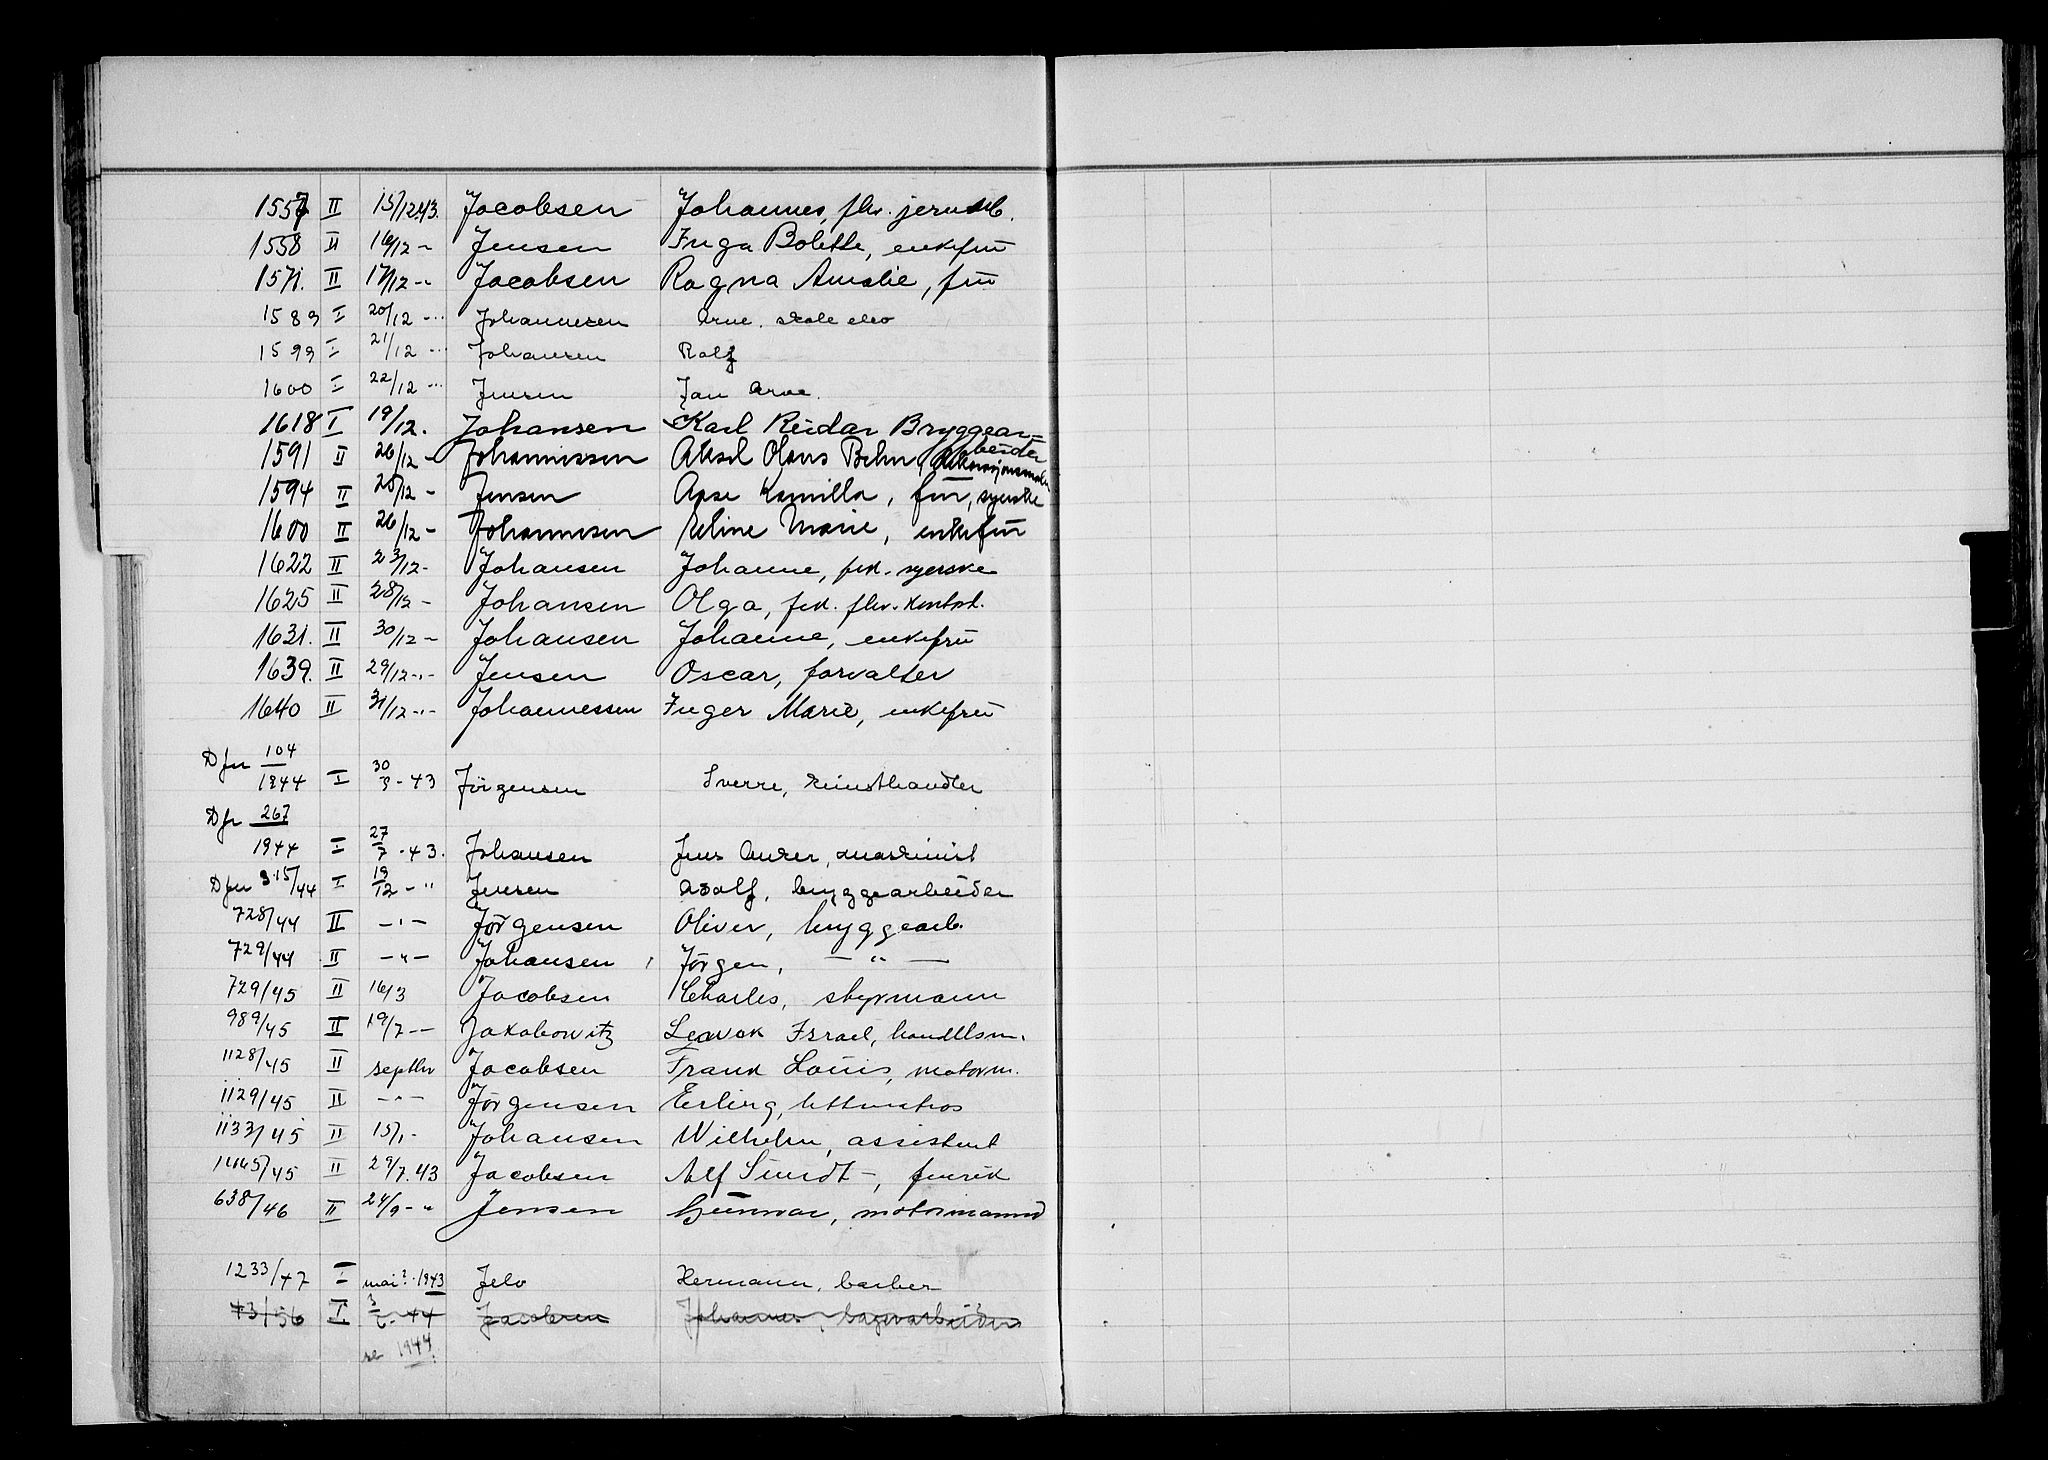 1557 II 15/12.43. Jacobsen Johannes, fhv. jernarb.
1558 II 16/12 - Jensen Inga Bolette, enkefru
1571. II 17/12 -"- Jacobsen Ragna Amalie, fru
1589 I 20/12 -"- Johannesen Arne. skole elev
1599 I 21/12 -"- Johansen Rolf
1600 I 22/12 -"- Jensen Jan Arve.
1618 I 19/12. Johansen Karl Reidar Bryggear-
beider
1591 II 26/12 - Johannessen Aksel Olaus Behn, dekorasjonsmaler
1594 II 25/12 - Jensen Aase Kamilla, fru, syerske
1600 II 26/12 - Johannesen Heline Marie, enkefru
1622 II 23/12 - Johansen Johanne, frk. syerske
1625 II 28/12 - Johansen Olga, frk. fhv. kontord.
1631. II 30/12 - Johansen Johanne, enkefru
1639. II 29/12 -"- Jensen Oscar, forvalter
1640 II 31/12 -"- Johannessen Inger Marie, enkefru
D jnr 104
1944 I 30/3 - 43 Jörgensen Sverre, kunsthandler
D jr 267
1944 I 27/7 - 43. Johansen Jens , maskinist
D jnr 315/44 I 19/12 - " Jensen Adolf, bryggearbeider
728/44 II -"- Jörgensen Oliver, bryggearb.
729/44 II -"- Johansen, Jörgen, -"-
729/45 II 16/3 Jacobsen Charles, styrmann
989/45 II 19/7 -- Jakobowitz Leavok Israel, handelsm.
1128/45 II septbr Jacobsen Frank Louis, motorm.
1129/45 II -"- Jörgensen Erling, lettmatros
1133/45 II 15/1 - Johansen Wilhelm, assistent
1445/45 II 29/7.43 Jacobsen Alf Sundt -, fenrik
638/46 II 24/9 - " Jensen Gunnar, motormannd
1233/47 I mai? 1943 Jelo Hermann, barber
43/56 I 3/6 - 44 Jacobsen Johannes, bryggearbeider
se 1944.